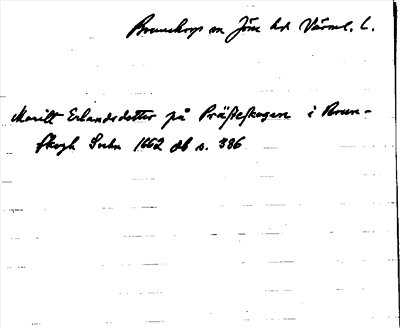 Brunskogs sn Jöss hd Värml. L.
Maritt Erlandsdotter på Prästeskogen i Brun-
skogh Sn 1662 db s. 386